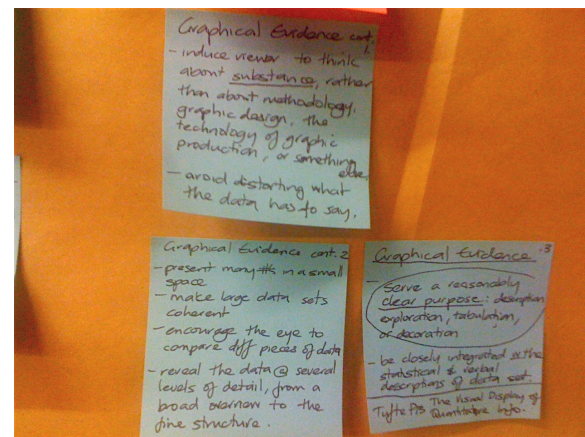 Graphical Evidence cont. 1.
- induce viewer to think
about substance, rather
than about methodology,
graphic design, the
technology of graphic
production, or something
else.
- avoid distorting what
the data has to say.
Graphical Evidence cont. 2
- present many #s in a small
space
- make large data sets
coherent
- encourage the eye to
compare diff pieces of data
- reveal the data @ several
levels of detail, from a
broad overview to the
fine structure.
Graphical Evidence .3
- serve a reasonably
clear purpose: description
exploration, tabulation,
or decoration
- be closely integrated w the
statistical & verbal
descriptions of data set.
Tufte The Visual Display of
Quantitative Info.